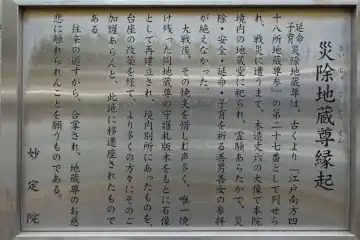 災除地蔵尊縁起
さいじょじぞうそん
延命
子育 災除地蔵尊は、古くより『江戸南方四
十八所地蔵尊参』の第二十七番として列せら
れ、戦災に遭うまで、木造丈六の大像で本院
境内の地蔵堂に祀られ、霊験あらたかで、災
除・安全・延命・子育を祈る善男善女の参拝
が絶えなかった。
大戦後、その焼失を惜しむ声多く、唯一焼
け残った同地蔵尊の守護札版木をもとに石像
として再建立され、境内別所にあったものを、
台座の改築を経て、より多くの方々にそのご
加護あらんと、此地に移遷座されたもので
ある。
往来の途すがら、合掌され、地蔵尊のお慈
悲に触れられんことを願うものである。
妙定院